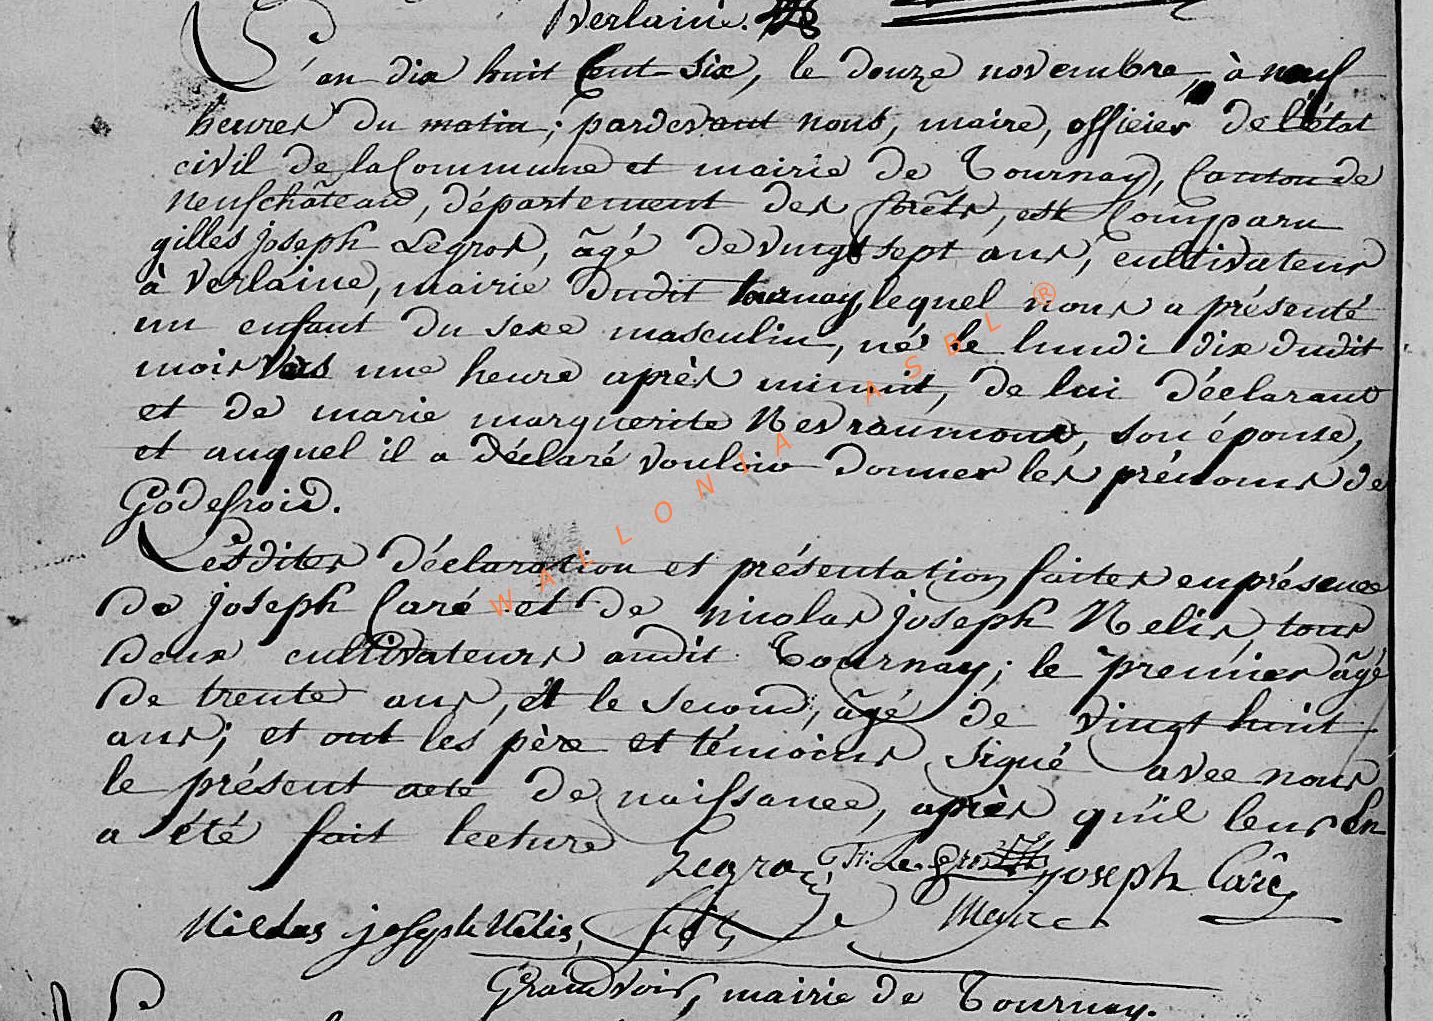 Verlaine.
L'an dix huit Cent six, le douze novembre, à neuf
heures du matin; pardevant nous, maire, officier de l'état
civil de la Commune et mairie de Tournay, Canton de
neufchâteau, département des forêts, est Comparu
gilles joseph Legros, âgé de vingt sept ans, cultivateur
à Verlaine, mairie dudit tournay, lequel nous a présenté
un enfant du sexe masculin, né le lundi dix dudit
mois vers une heure après minuit, de lui déclarant
et de marie marguerite Nevraumont, son épouse,
et auquel il a déclaré vouloir donner les prénoms de
Godefroid.
Lesdites déclaration et présentation faites en présence
de joseph Caré et de nicolas joseph Nelis, tous
deux cultivateurs audit Tournay; le premier âgé
de trente ans, et le second, âgé de vingt huit
ans; et ont les père et témoins signé avec nous
le présent acte de naissance, après qu'il leur en
a été fait lecture
Legros Le gros joseph Caré
Maire
Nicolas joseph Nelis
Grandvoir, mairie de Tournay.
WALLONIA ASBL ®